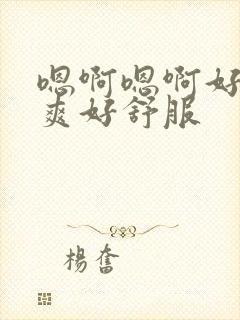 嗯啊嗯啊好
爽好舒服
楊奮